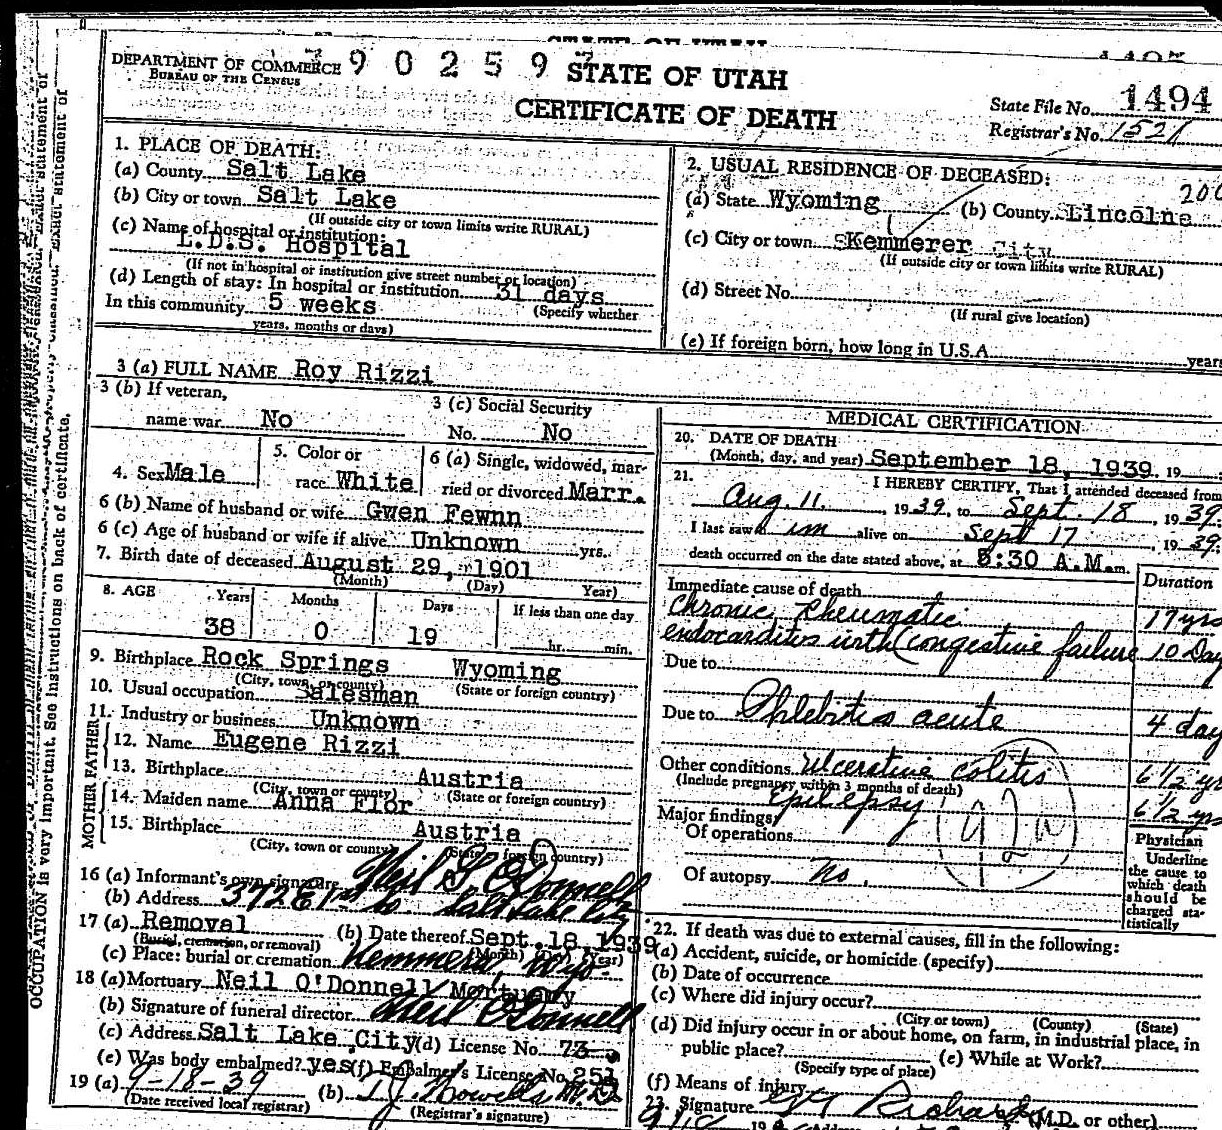 STATE OF UTAH
DEPARTMENT OF COMMERCE
BUREAU OF THE CENSUS
7 9 0 2 5 9 7
STATE OF UTAH
CERTIFICATE OF DEATH
State File No. 1494
Registrar's No. 1521
1. PLACE OF DEATH:
(a) County Salt Lake
(b) City or town Salt Lake
(If outside city or town limits write RURAL)
(c) Name of hospital or institution:
L.D.S. Hospital
(If not in hospital or institution give street number or location)
(d) Length of stay: In hospital or institution 31 days
In this community 5 weeks (Specify whether
years, months or days)
2. USUAL RESIDENCE OF DECEASED:
(a) State Wyoming (b) County Lincolne
(c) City or town Kemmerer City
(If outside city or town limits write RURAL)
(d) Street No.
(If rural give location)
(e) If foreign born, how long in U.S.A. years
3 (a) FULL NAME Roy Rizzi
3 (b) If veteran,
name war No
3 (c) Social Security
No. No
4. Sex Male
5. Color or
race White
6 (a) Single, widowed, mar-
ried or divorced Marr.
6 (b) Name of husband or wife Gwen Fewnn
6 (c) Age of husband or wife if alive Unknown yrs.
7. Birth date of deceased August 29, 1901
(Month) (Day) Year)
8. AGE Years Months Days If less than one day
38 0 19 hr. min.
9. Birthplace Rock Springs Wyoming
(City, town, or county) (State or foreign country)
10. Usual occupation Salesman
11. Industry or business Unknown
FATHER
12. Name Eugene Rizzi
13. Birthplace Austria
(City, town or county) (State or foreign country)
MOTHER
14. Maiden name Anna Flor
15. Birthplace Austria
(City, town or county) (State or foreign country)
16 (a) Informant's own signature Neil S O'Donnell
(b) Address 372 E 1st So. Salt Lake City
17 (a) Removal (b) Date thereof Sept. 18, 1939
(Burial, cremation, or removal) (Month) (Day) (Year)
(c) Place: burial or cremation Kemmerer, Wyo.
18 (a) Mortuary Neil O'Donnell Mortuary
(b) Signature of funeral director Neil O'Donnell
(c) Address Salt Lake City (d) License No. 73
(e) Was body embalmed? yes (f) Embalmer's License No. 251
19 (a) 9-18-39 (b) T.J. Howells M.D.
(Date received local registrar) (Registrar's signature)
MEDICAL CERTIFICATION
20. DATE OF DEATH
(Month, day, and year) September 18, 1939. 19
21. I HEREBY CERTIFY, That I attended deceased from
Aug. 11, 1939, to Sept. 18, 1939
I last saw him alive on Sept 17, 1939.
death occurred on the date stated above, at 8:30 A.M. m.
Duration
Immediate cause of death
Chronic Rheumatic 17 yrs
endocarditis with congestive failure 10 Day
Due to
Due to Phlebitis acute 4 day
Other conditions Ulcerative colitis 6 1/2 yr
(Include pregnancy within 3 months of death)
Epilepsy 6 1/2 yrs
Major findings:
Of operations
Of autopsy No.
92a
Physician
Underline
the cause to
which death
should be
charged sta-
tistically
22. If death was due to external causes, fill in the following:
(a) Accident, suicide, or homicide (specify)
(b) Date of occurrence
(c) Where did injury occur?
(City or town) (County) (State)
(d) Did injury occur in or about home, on farm, in industrial place, in
public place? (e) While at Work?
(Specify type of place)
(f) Means of injury
23. Signature (M.D. or other)
OCCUPATION is very important. See instructions on back of certificate.